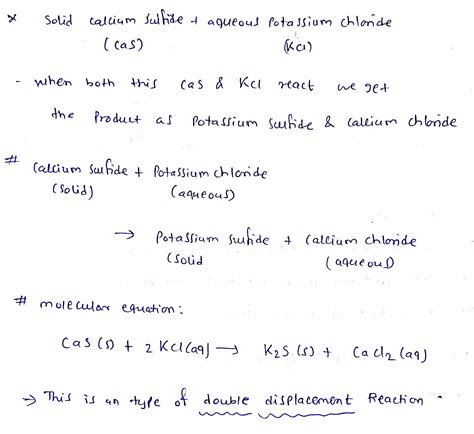 * Solid calcium sulfide + aqueous Potassium chloride
(CaS) (KCl)
- when both this CaS & KCl react we get
the Product as Potassium sulfide & calcium chloride
# Calcium sulfide + Potassium chloride
(solid) (aqueous)
→ Potassium sulfide + Calcium chloride
(solid (aqueous)
# molecular equation:
CaS (s) + 2 KCl (aq) → K₂S (s) + CaCl₂ (aq)
→ This is an type of double displacement Reaction.